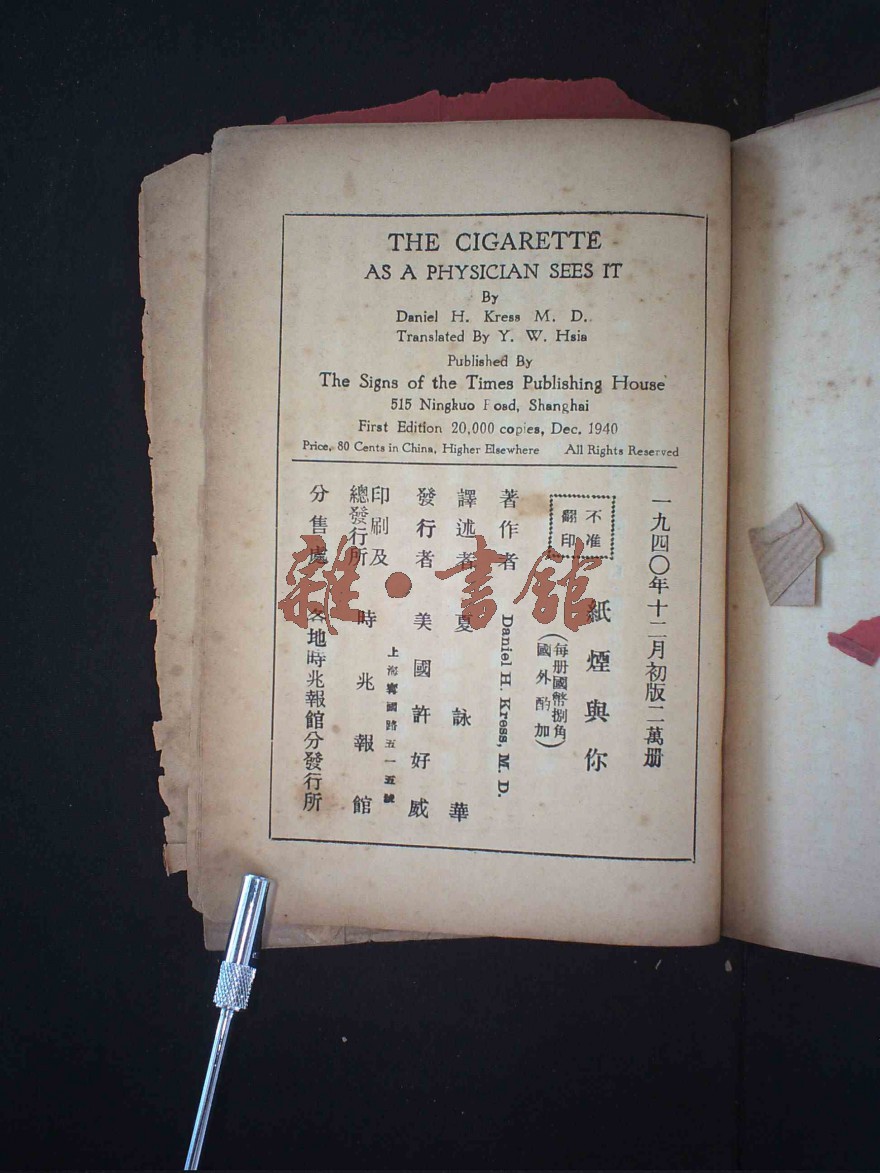 THE CIGARETTE
AS A PHYSICIAN SEES IT
By
Daniel H. Kress M. D.
Translated By Y. W. Hsia
Published By
The Signs of the Times Publishing House
515 Ningkuo Road, Shanghai
First Edition 20,000 copies, Dec. 1940
Price, 80 Cents in China, Higher Elsewhere All Rights Reserved
一九四〇年十二月初版二萬册
不准
翻印
紙煙與你
(每册國幣捌角
國外酌加)
著作者 Daniel H. Kress, M. D.
譯述者 夏詠華
發行者 美國許好威
上海寗國路五一五號
印刷及
總發行所 時兆報館
分售處 各地時兆報館分發行所
雜·書館